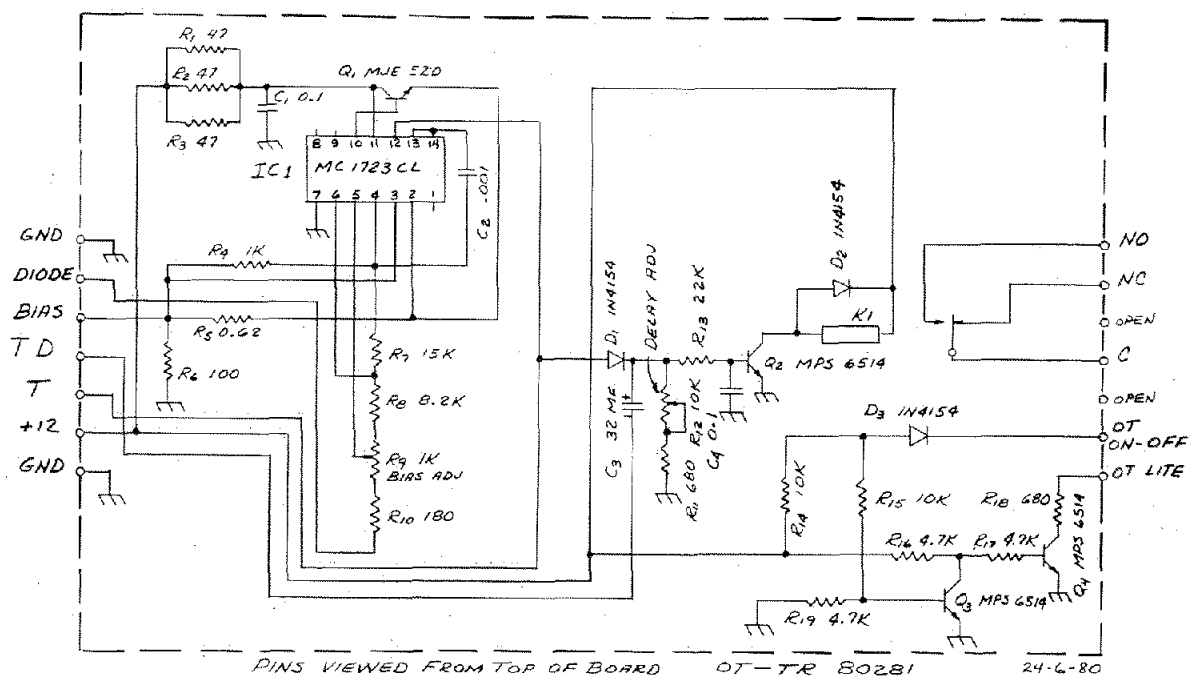 R1 47
R2 47
R3 47
C1 0.1
Q1 MJE 520
8 9 10 11 12 13 14
IC1
MC 1723 CL
7 6 5 4 3 2 1
C2 .001
GND
DIODE
BIAS
TD
T
+12
GND
R4 1K
R5 0.62
R6 100
R7 15K
R8 8.2K
R9 1K
BIAS ADJ
R10 180
D1 1N4154
DELAY ADJ
R13 22K
C3 32 ME
R11 680
R12 10K
C4 0.1
D2 1N4154
K1
Q2 MPS 6514
D3 1N4154
NO
NC
OPEN
C
OPEN
OT
ON-OFF
OT LITE
R14 10K
R15 10K
R18 680
R16 4.7K
R17 4.7K
Q4 MPS 6514
Q3 MPS 6514
R19 4.7K
PINS VIEWED FROM TOP OF BOARD OT-TR 80281 24-6-80